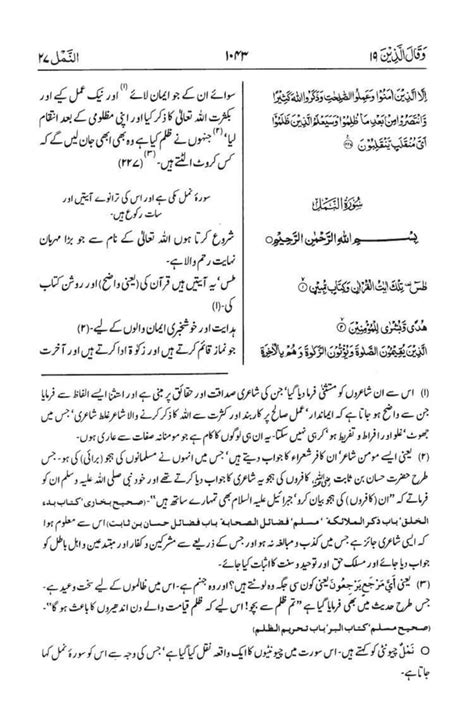 وَقَالَ الَّذِیْنَ ۱۹
۱۰۴۳
النَّمْل ۲۷
اِلَّا الَّذِیْنَ اٰمَنُوْا وَعَمِلُوا الصّٰلِحٰتِ وَذَکَرُوا اللّٰهَ کَثِیْرًا
وَّانْتَصَرُوْا مِنْۢ بَعْدِ مَا ظُلِمُوْا ؕ وَسَیَعْلَمُ الَّذِیْنَ ظَلَمُوْۤا
اَیَّ مُنْقَلَبٍ یَّنْقَلِبُوْنَ ۟
سُوْرَةُ النَّمْلِ
بِسْــــــمِ اللّٰهِ الرَّحْمٰنِ الرَّحِيْمِ ○
طٰسٓ ۟ تِلْكَ اٰیٰتُ الْقُرْاٰنِ وَکِتَابٍ مُّبِیْنٍ ۟ۙ
هُدًی وَّبُشْرٰی لِلْمُؤْمِنِیْنَ ۟ۙ
الَّذِیْنَ یُقِیْمُوْنَ الصَّلٰوةَ وَیُؤْتُوْنَ الزَّکٰوةَ وَهُمْ بِالْاٰخِرَةِ
سوائے ان کے جو ایمان لائے (۱) اور نیک عمل کیے اور
بکثرت اللہ تعالیٰ کا ذکر کیا اور اپنی مظلومی کے بعد انتقام
لیا، (۲) جنہوں نے ظلم کیا ہے وہ بھی ابھی جان لیں گے کہ
کس کروٹ الٹتے ہیں۔ (۳) (۲۲۷)
سورۂ نمل مکی ہے اور اس کی ترانوے آیتیں اور
سات رکوع ہیں۔
شروع کرتا ہوں اللہ تعالیٰ کے نام سے جو بڑا مہربان
نہایت رحم والا ہے۔
طس، یہ آیتیں ہیں قرآن کی (یعنی واضح) اور روشن کتاب
کی۔ (۱)
ہدایت اور خوشخبری ایمان والوں کے لیے۔ (۲)
جو نماز قائم کرتے ہیں اور زکوٰۃ ادا کرتے ہیں اور آخرت
(۱) اس سے ان شاعروں کو مستثنیٰ فرما دیا گیا، جن کی شاعری صداقت اور حقائق پر مبنی ہے اور استثنا ایسے الفاظ سے فرمایا
جن سے واضح ہو جاتا ہے کہ ایماندار، عمل صالح پر کاربند اور کثرت سے اللہ کا ذکر کرنے والا شاعر غلط شاعری، جس میں
جھوٹ، غلو اور افراط و تفریط ہو، کر ہی نہیں سکتا۔ یہ ان ہی لوگوں کا کام ہے جو مومنانہ صفات سے عاری ہوں۔
(۲) یعنی ایسے مومن شاعر، ان کافر شعراء کا جواب دیتے ہیں، جس میں انہوں نے مسلمانوں کی ہجو (برائی) کی ہو۔ جس
طرح حضرت حسان بن ثابت رضی اللہ عنہ کافروں کی ہجویہ شاعری کا جواب دیا کرتے تھے اور خود نبی صلی اللہ علیہ وسلم ان کو
فرماتے کہ ”ان (کافروں) کی ہجو بیان کرو، جبرائیل علیہ السلام بھی تمہارے ساتھ ہیں“۔ (صحیح بخاری، کتاب بدء
الخلق، باب ذکر الملائکة، مسلم، فضائل الصحابة، باب فضائل حسان بن ثابت) اس سے معلوم ہوا
کہ ایسی شاعری جائز ہے جس میں کذب و مبالغہ نہ ہو اور جس کے ذریعے سے مشرکین و کفار اور مبتدعین و اہل باطل کو
جواب دیا جائے اور مسلک حق اور توحید و سنت کا اثبات کیا جائے۔
(۳) یعنی أَيَّ مَرْجَعٍ يَرْجِعُونَ یعنی کون سی جگہ وہ لوٹتے ہیں؟ اور وہ جہنم ہے۔ اس میں ظالموں کے لیے سخت وعید ہے۔
جس طرح حدیث میں بھی فرمایا گیا ہے ”تم ظلم سے بچو! اس لیے کہ ظلم قیامت والے دن اندھیروں کا باعث ہو گا“۔
(صحیح مسلم، کتاب البر، باب تحریم الظلم)
○ نَمْلٌ چیونٹی کو کہتے ہیں۔ اس سورت میں چیونٹیوں کا ایک واقعہ نقل کیا گیا ہے، جس کی وجہ سے اس کو سورۂ نمل کہا
جاتا ہے۔